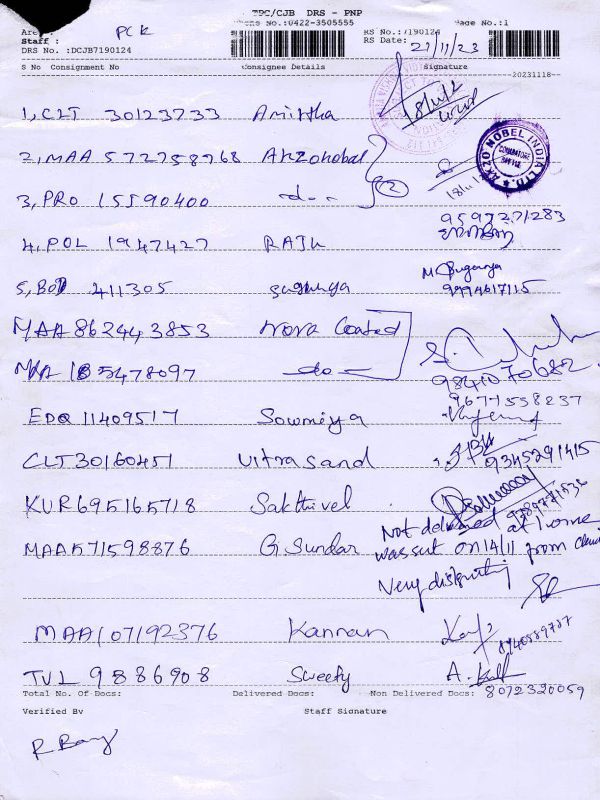 TPC/CJB DRS - PNP
Phone No.:0422-3505555 Page No.:1
Area : PCK RS No.:7190124
Staff : RS Date: 21/11/23
DRS No. :DCJB7190124
S No Consignment No Consignee Details Signature
20231118
1, CLT 30123733 Amirtha
2, MAA 572758968 Akzonobal
3, PRO 15590400 -do- 2 18/11
AKZO NOBEL INDIA LTD. COIMBATORE
4, POL 1947427 RAJU 9597271283
5, BOD 411305 Sugunya M Suganya 9994617115
MAA 862443853 Nova Coated
MAA 185478097 -do- 9841070682
EDQ 11409517 Sowmiya 9677558237
CLT 30160451 Vitrasand 9345291415
KUR 695165718 Sakthivel 9789771536
MAA 571598876 G. Sundar Not delivered at home
was sent on 14/11 from Chennai
Very disgusting
MAA 107192376 Kannan
TVL 9886908 Sweety 8072320059
Total No. Of Docs: Delivered Docs: Non Delivered Docs:
Verified By Staff Signature